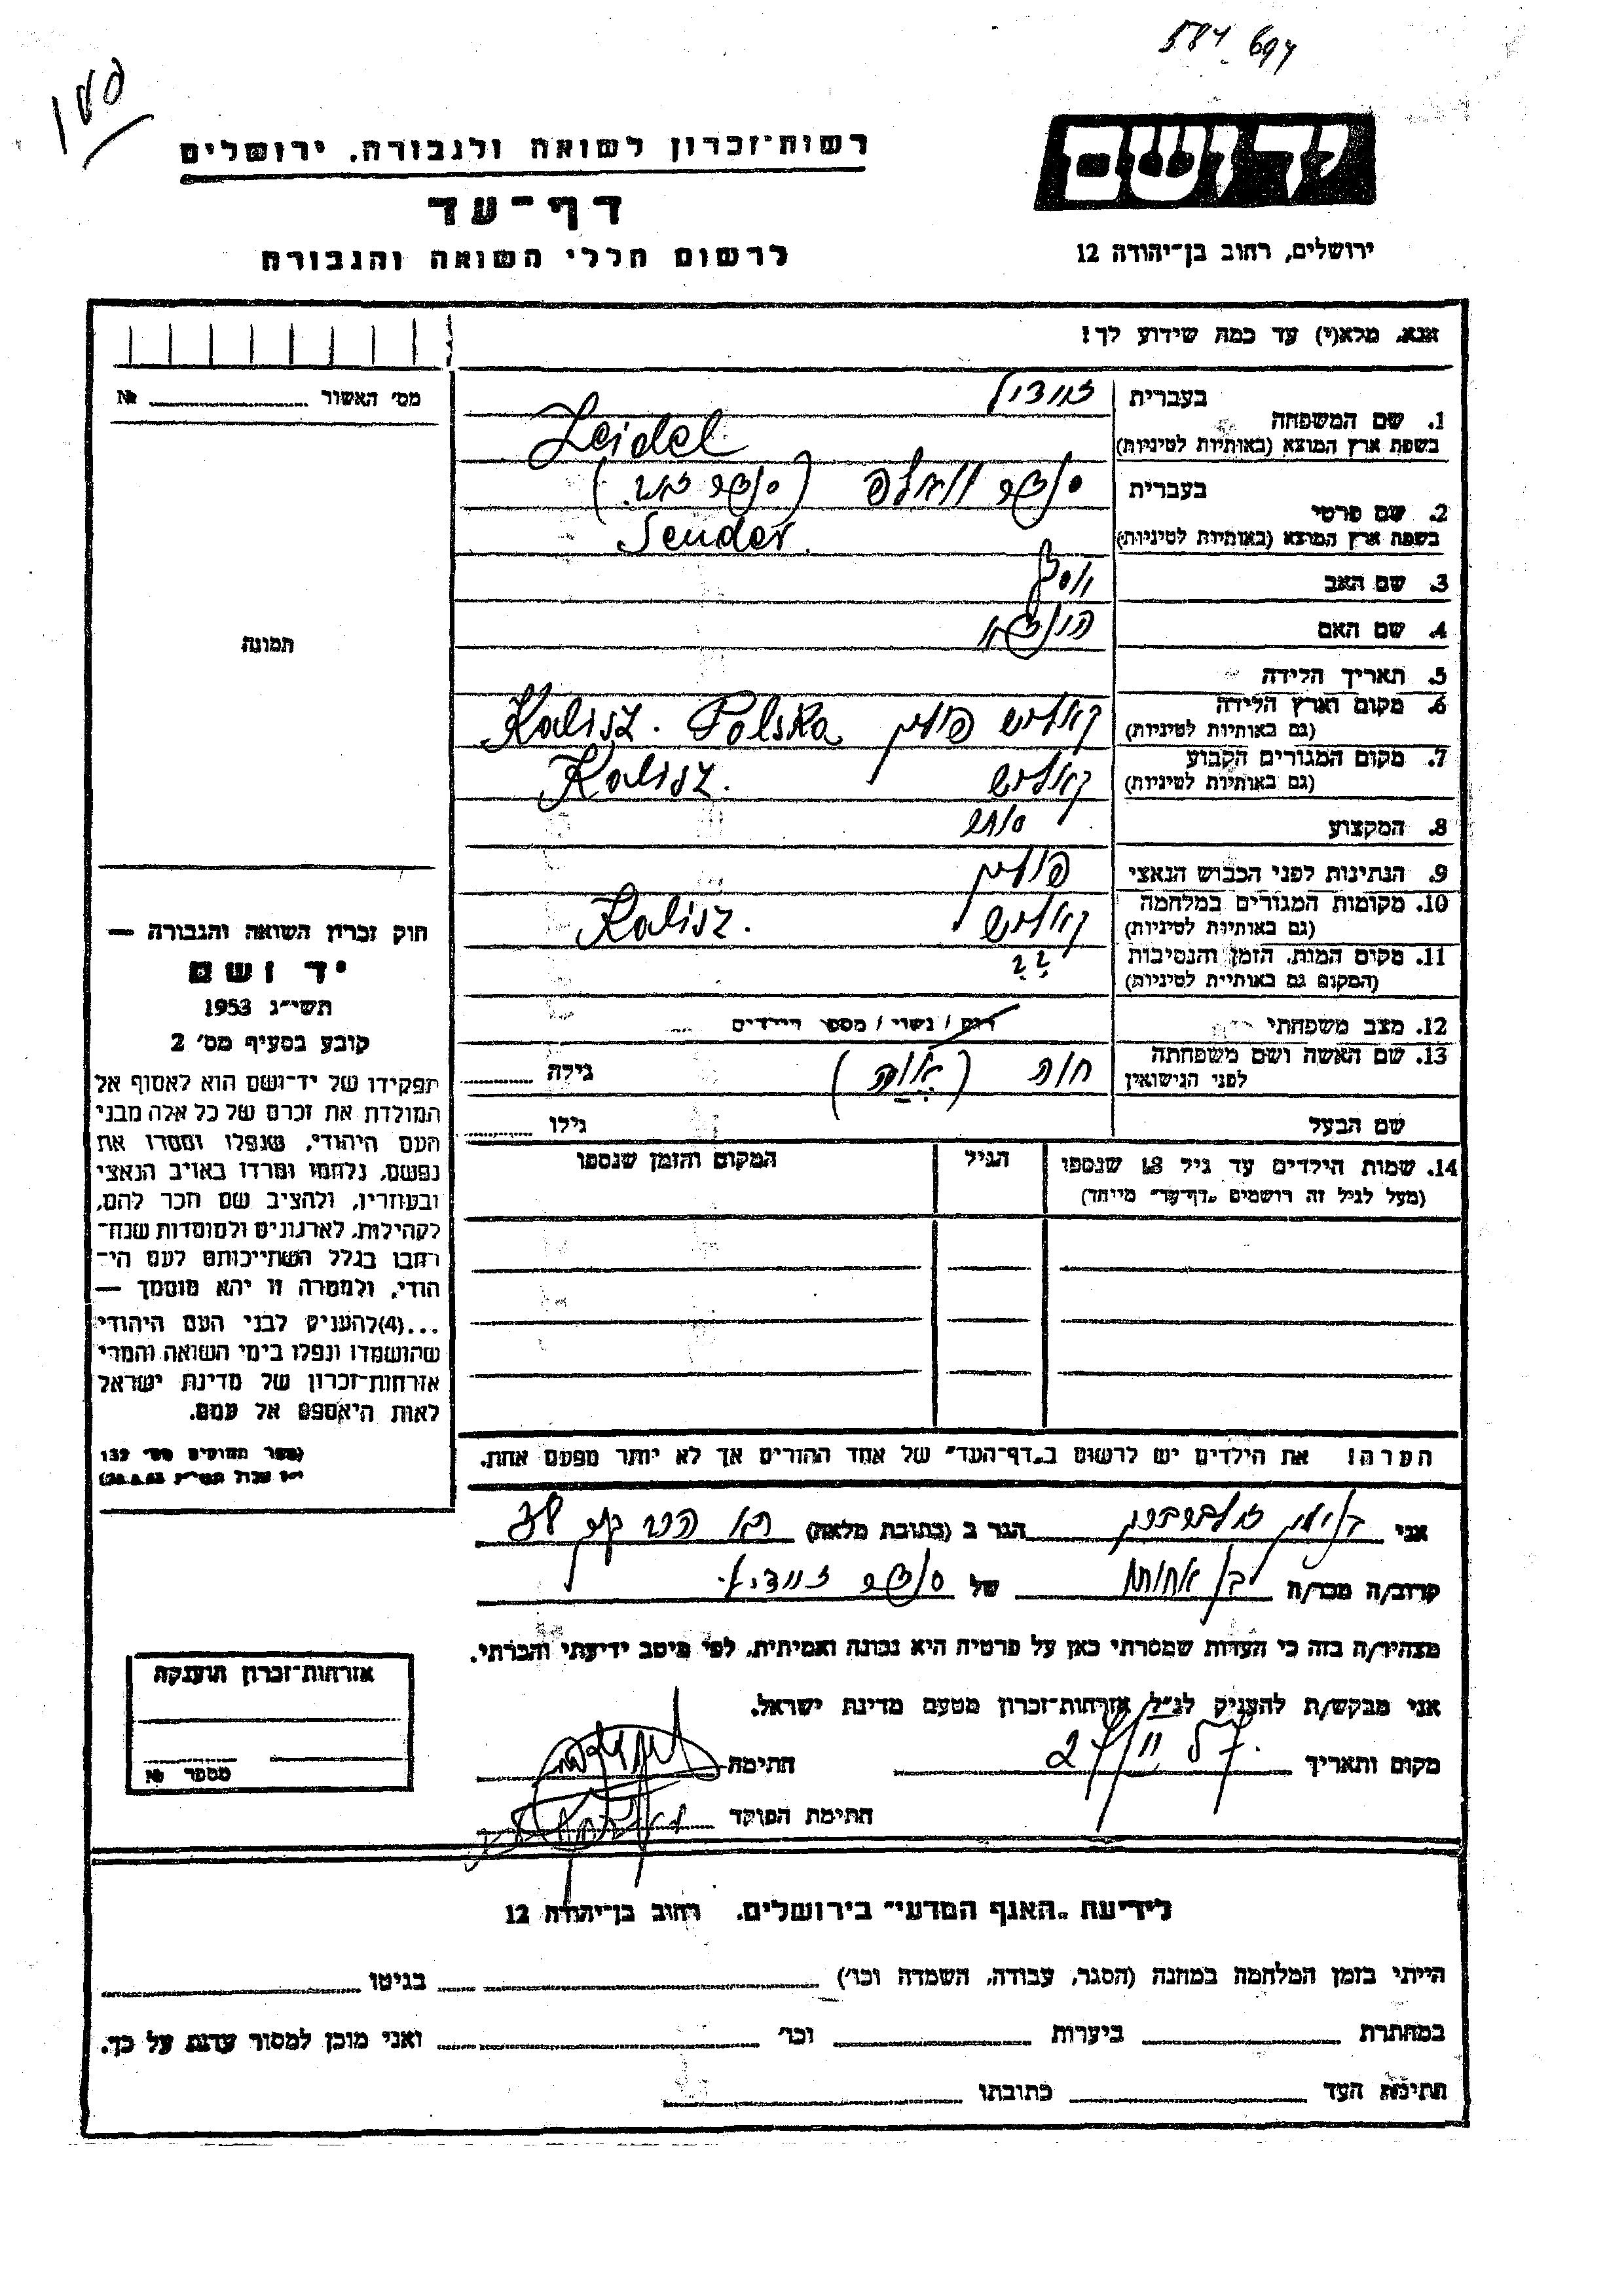 יד ושם
ירושלים, רחוב בן־יהודה 12
רשות־זכרון לשואה ולגבורה. ירושלים
דף־עד
לרשום חללי השואה והגבורה
אנא, מלא(י) עד כמה שידוע לך!
מס׳ האשור № 
בעברית
1. שם המשפחה
בשפת ארץ המוצא (באותיות לטיניות) Zeidel
בעברית סנדר
2. שם פרטי
בשפת ארץ המוצא (באותיות לטיניות) Sender.
3. שם האב
4. שם האם
תמונה
5. תאריך הלידה
6. מקום וארץ הלידה קאליש פולין Kalisz. Polska
(גם באותיות לטיניות)
7. מקום המגורים הקבוע קאליש Kalisz.
(גם באותיות לטיניות)
8. המקצוע סוחר
9. הנתינות לפני הכבוש הנאצי פולין
10. מקומות המגורים במלחמה קאליש Kalisz.
(גם באותיות לטיניות)
11. מקום המות, הזמן והנסיבות ? ?
(המקום גם באותיות לטיניות)
12. מצב משפחתי רווק / נשוי / מספר הילדים
13. שם האשה ושם משפחתה חוה גילה
לפני הנישואין
שם הבעל גילו
14. שמות הילדים עד גיל 18 שנספו הגיל המקום והזמן שנספו
(מעל לגיל זה רושמים „דף־עד״ מיוחד)
חוק זכרון השואה והגבורה —
יד ושם
תשי״ג 1953
קובע בסעיף מס׳ 2
תפקידו של יד־ושם הוא לאסוף אל
המולדת את זכרם של כל אלה מבני
העם היהודי, שנפלו ומסרו את
נפשם, נלחמו ומרדו באויב הנאצי
ובעוזריו, ולהציב שם וזכר להם,
לקהילות, לארגונים ולמוסדות שנח־
רבו בגלל השתייכותם לעם הי־
הודי, ולמטרה זו יהא מוסמך —
...(4)להעניק לבני העם היהודי
שהושמדו ונפלו בימי השואה והמרי
אזרחות־זכרון של מדינת ישראל
לאות היאספם אל עמם.
(ספר החוקים מס׳ 132
הערה! את הילדים יש לרשום ב„דף־העד״ של אחד ההורים אך לא יותר מפעם אחת.
אני הגר ב (כתובת מלאה)
קרוב/ה מכר/ה בן אחותו של סנדר זיידל.
מצהיר/ה בזה כי העדות שמסרתי כאן על פרטיה היא נכונה ואמיתית, לפי מיטב ידיעתי והכרתי.
אני מבקש/ת להעניק לנ״ל אזרחות־זכרון מטעם מדינת ישראל.
מקום ותאריך 27/11 חתימה
חתימת הפוקד
אזרחות־זכרון הוענקה
מספר №
לידיעת „האגף המדעי״ בירושלים. רחוב בן־יהודה 12
הייתי בזמן המלחמה במחנה (הסגר, עבודה, השמדה וכו׳) בגיטו
במחתרת ביערות וכו׳ ואני מוכן למסור עדות על כך.
חתימת העד כתובתו